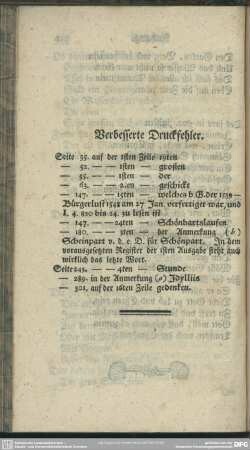 Verbesserte Druckfehler.
Seite 35. auf der 1sten Zeile 19ten
— 52. — — 1sten — grosten
— 55. — — 1sten — der
— 63. — — 2.en — geschickt
— 147. — 15ten — welches
Bürgerlust 1542 am 27 Jan. verfertiget war, und
l. 4. 820 bis 24. zu lesen ist
— 147. — — 24ten — Schönhartslaufen
— 180. — — 3ten — der Anmerkung (b)
Scheinpart v. d. e D. für Schönpart. In dem
vorausgesetzten Register der 1sten Ausgabe steht auch
wirklich das letzte Wort.
Seite 245. — — 4ten — Stunde
— 289. in der Anmerkung (a) Idylliis
— 301. auf der 16ten Zeile gedenken.